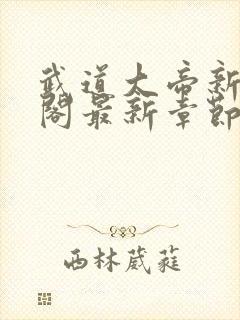 武道大帝新
阁最新章節
西林葳蕤